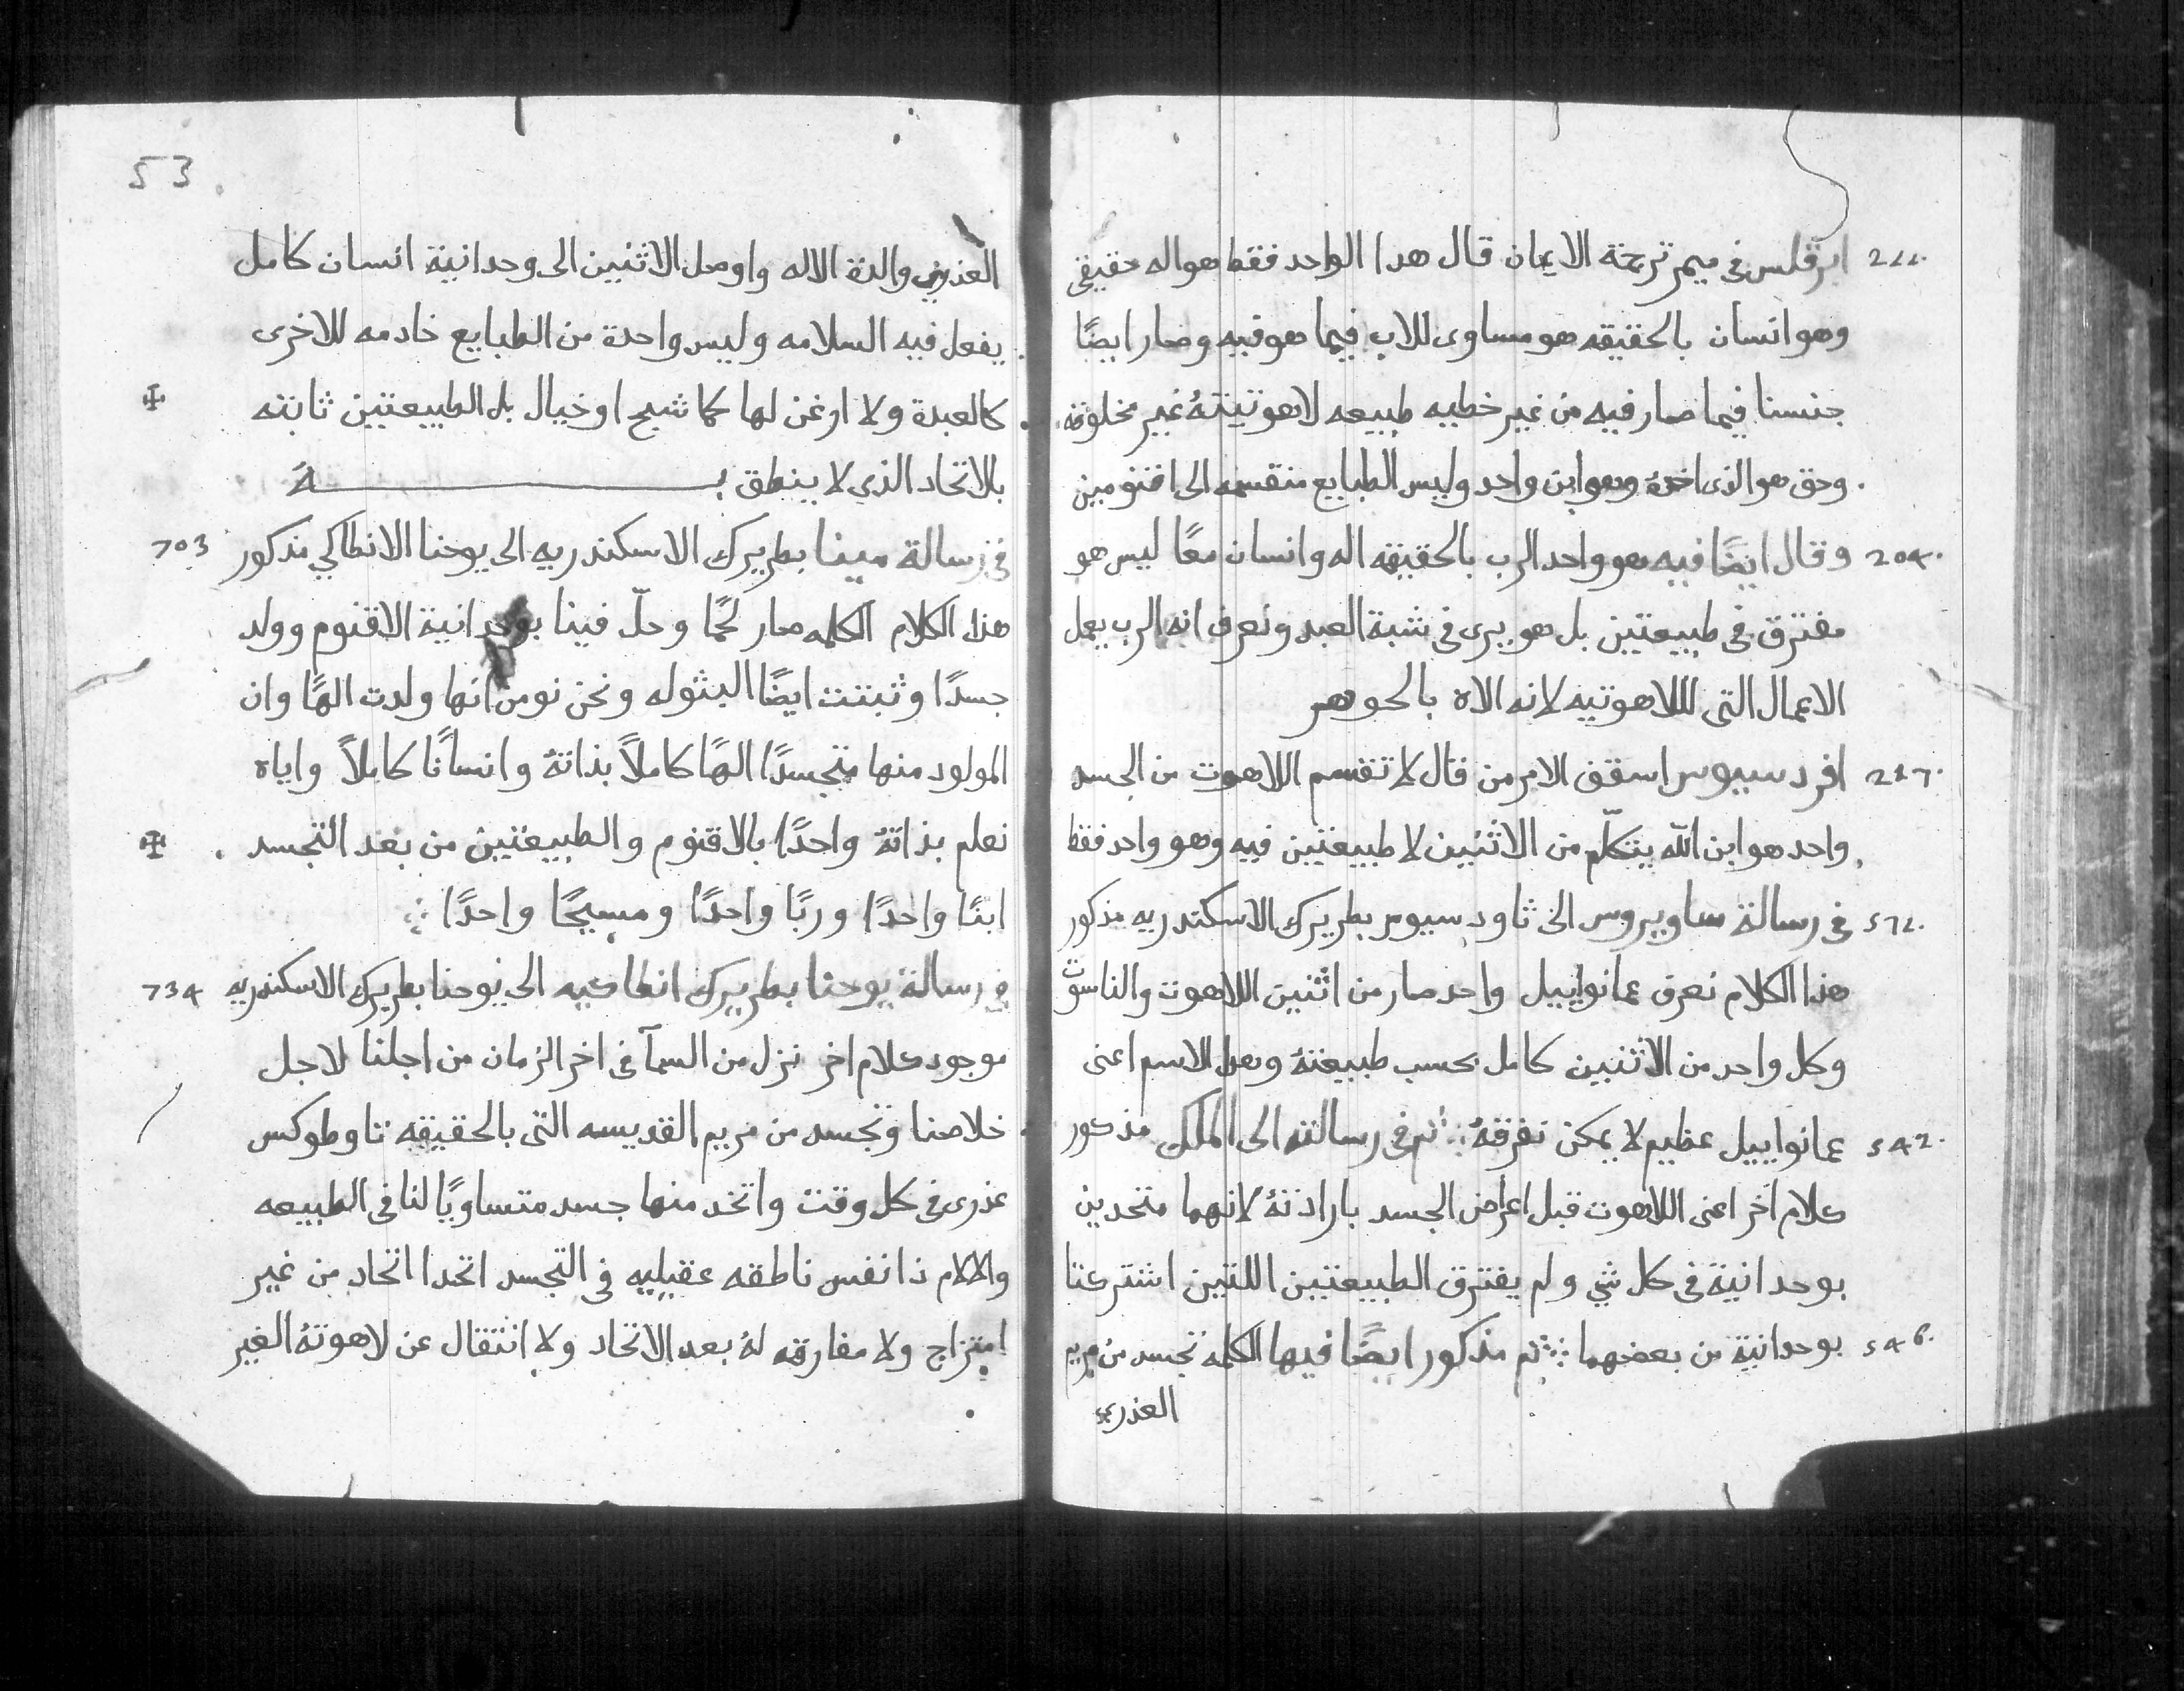 211. ابرقلس فى ميمر ترجمة الايمان قال هدا الواحد فقط هو اله حقيقى
وهو انسان بالحقيقه هو مساوى للاب فيما هو فيه وصار ايضًا
جنسنا فيما صار فيه من غير خطيه طبيعه لاهوتيتهُ غير مخلوقه
وحق هو الذى اخدهُ وهو ابن واحد وليس الطبايع منقسمه الى اقنومين
204. وقال ايضًا فيه هو واحد الرب بالحقيقه اله وانسان معًا ليس هو
مفترق فى طبيعتين بل هو يرى فى شبة العبد ونعرف انه الرب يعمل
الاعمال التى لللاهوتيه لانه الاه بالجوهر
217. افردسيوس اسقف الامرمن قال لا تقسم اللاهوت من الجسد
واحد هو ابن اللّه يتكلّم من الاثنين لا طبيعتين فيه وهو واحد فقط
512. فى رسالة ساويروس الى ثاودسيوس بطريرك الاسكندريه مذكور
هذا الكلام نعرف عمانواييل واحد صار من اثنين اللاهوت والناسوت
وكل واحد من الاثنين كامل بحسب طبيعتهُ وهدا الاسم اعنى
542. عمانواييل عظيم لا يمكن تفرقهُ ثم فى رسالته الى الملك مذكور
كلام اخر اعنى اللاهوت قبل اعراض الجسد بارادتهُ لانهما متحدين
بوحدانية فى كل شي ولم يفترق الطبيعتين اللتين اشتركتا
546. بوحدانية من بعضهما ثم مذكور ايضًا فيها الكلمه تجسد من مريم
العذرى
53
العذرى والدة الاله واوصل الاثنين الى وحدانية انسان كامل
يفعل فيه السلامه وليس واحدة من الطبايع خادمه للاخرى
كالعبدة ولا ارغن لها كما شبح او خيال بل الطبيعتين ثابته
بالاتحاد الذى لا ينطق بـــــــــه
703 فى رسالة مينا بطريرك الاسكندريه الى يوحنا الانطاكي مذكور
هذا الكلام الكلمه صار لحمًا وحلّ فينا بوحدانية الاقنوم وولد
جسدًا وثبتت ايضًا البثوله ونحن نومن انها ولدت الهًا وان
المولود منها متجسدًا الهًا كاملاً بذاتهُ وانسانًا كاملاً واياه
نعلم بذاتهُ واحدًا بالاقنوم والطبيعتين من بعد التجسد
ابنًا واحدًا وربًا واحدًا ومسيحًا واحدًا
734 فى رسالة يوحنا بطريرك انطاكيه الى يوحنا بطريرك الاسكندريه
موجود كلام اخر نزل من السمآ فى اخر الزمان من اجلنا لاجل
خلاصنا وتجسد من مريم القديسه التى بالحقيقه تاوطوكس
عذرى فى كل وقت واتخد منها جسد متساويًا لنا فى الطبيعه
والالام ذا نفس ناطقه عقيليه فى التجسد اتحدا اتحاد من غير
امتزاج ولا مفارقه لهُ بعد الاتحاد ولا انتقال عن لاهوتهُ الغير